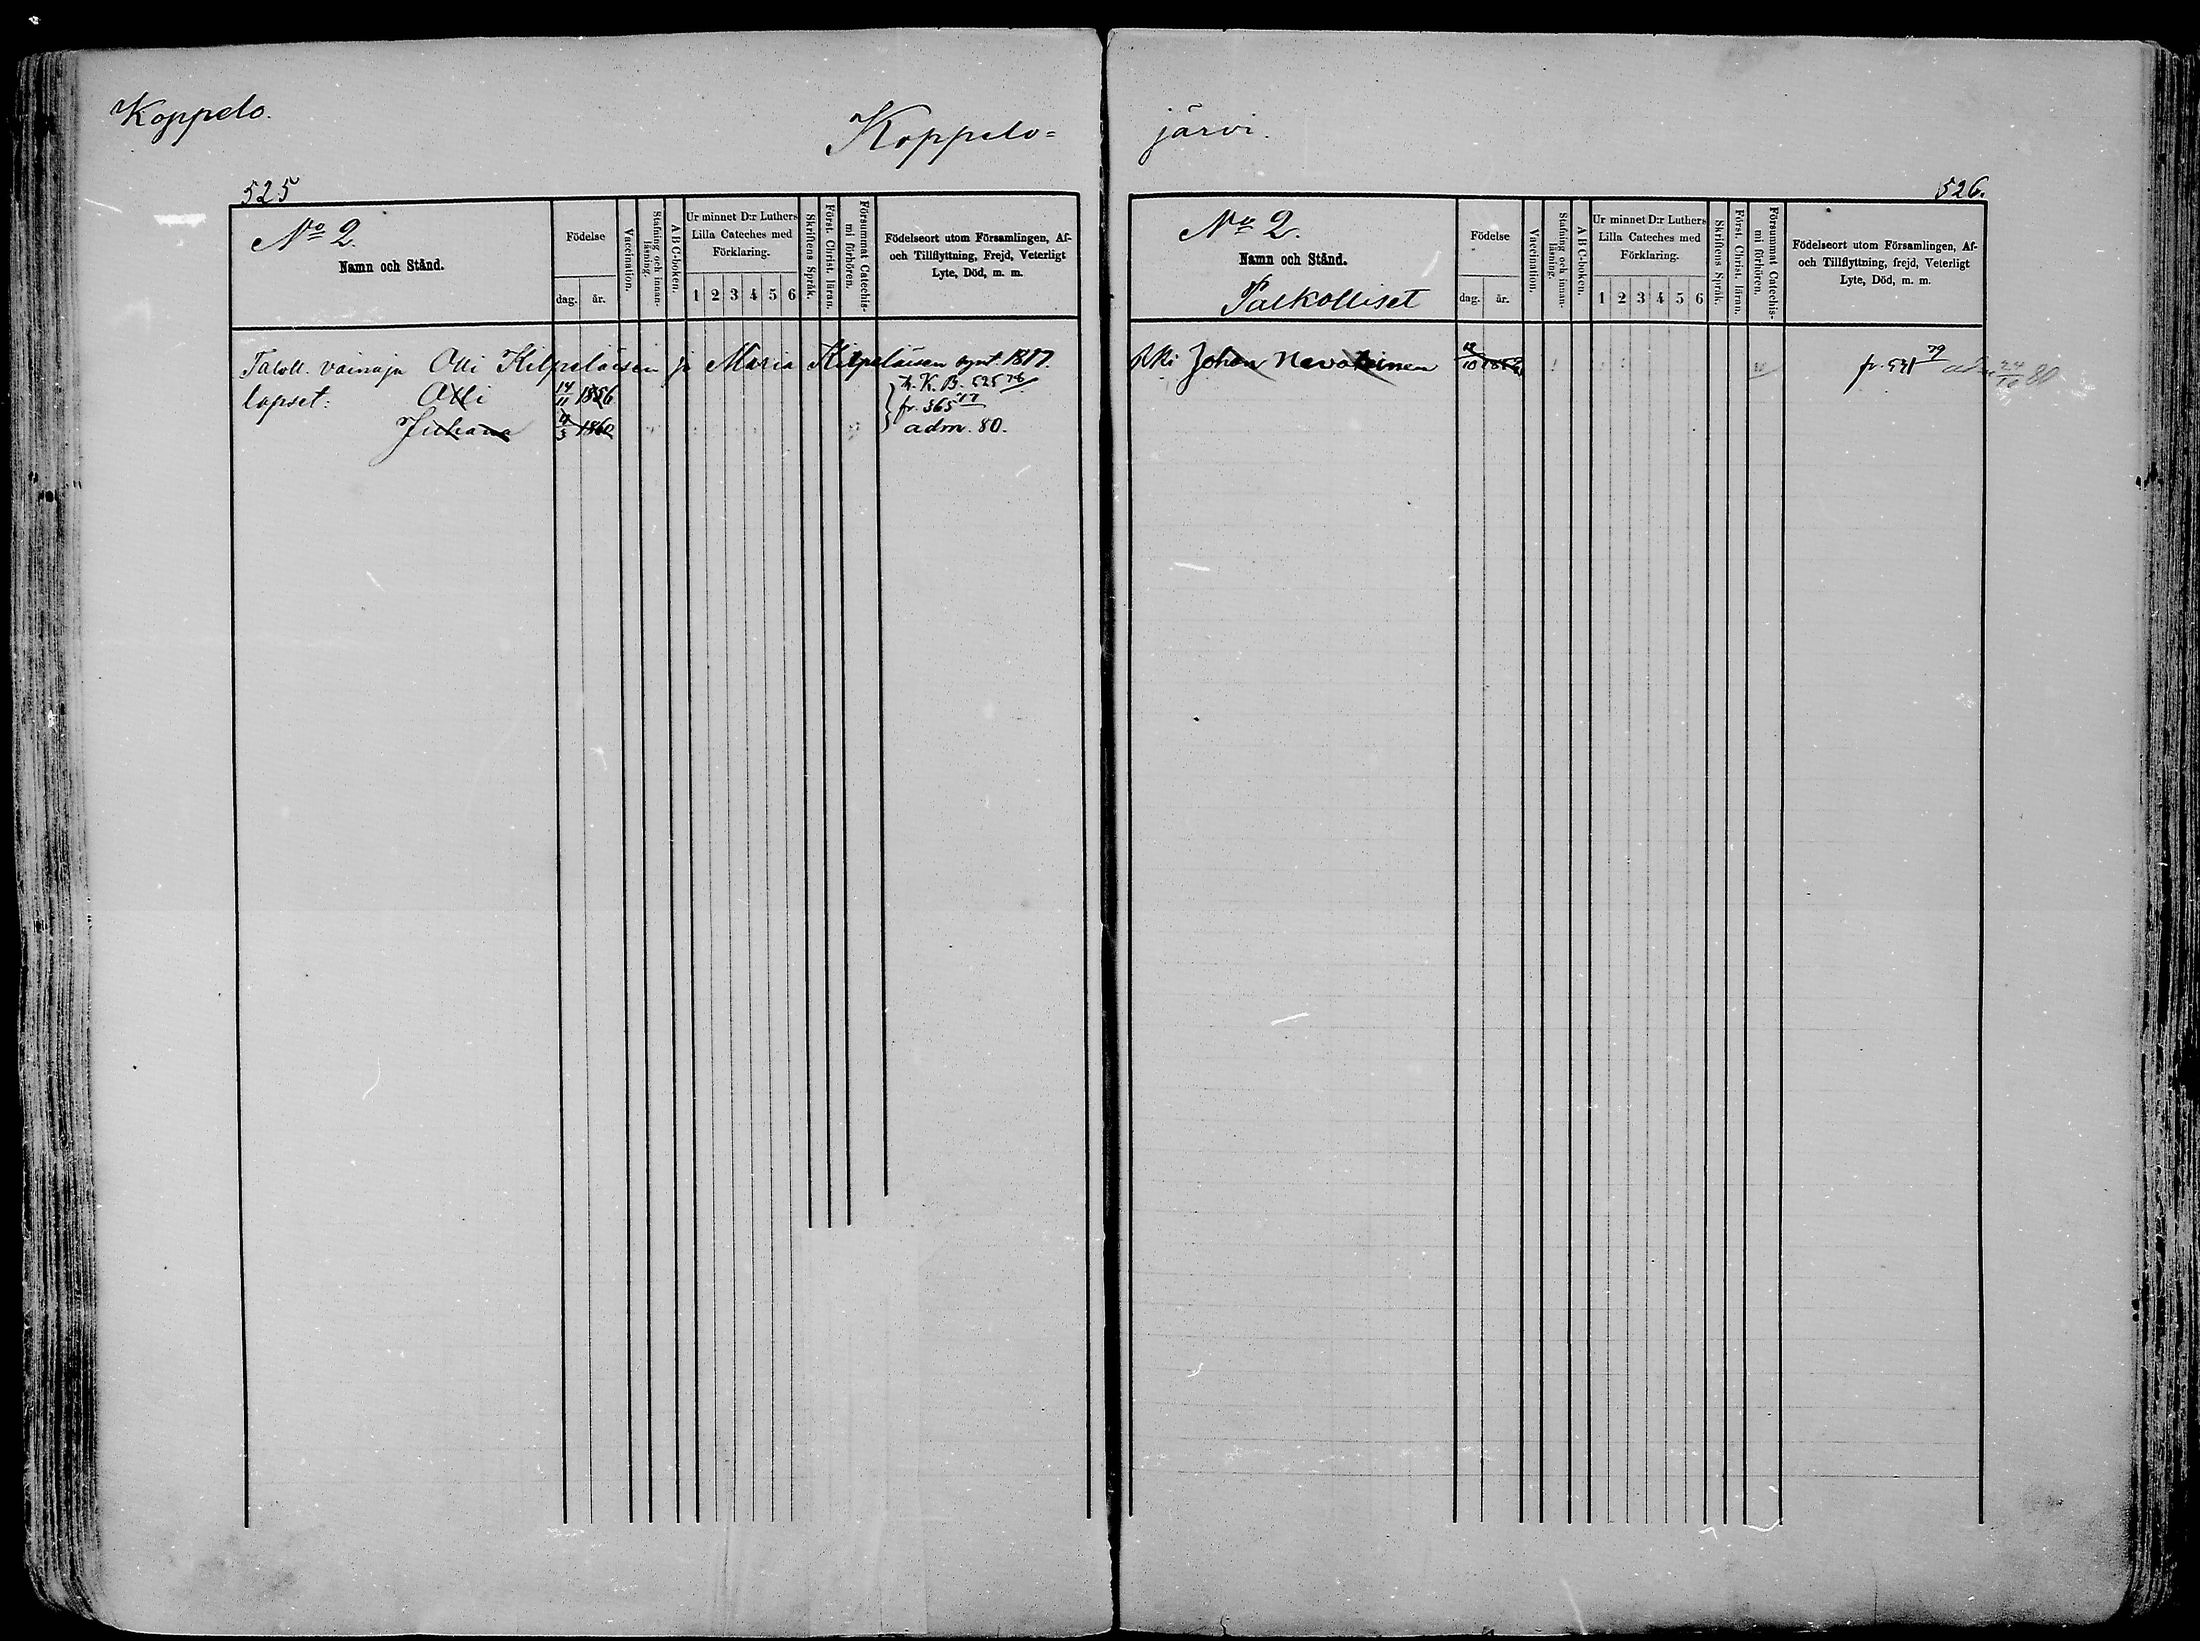 Koppelo.
Koppelo=
järvi.
525
No 2.
Namn och Stånd.
Födelse
dag. år.
Vaccination.
Stafning och innanläsning.
ABC-boken.
Ur minnet D:r Luthers
Lilla Cateches med
Förklaring.
1 2 3 4 5 6
Skriftens Språk.
Först. Christ. läran.
Försummat Catechismi förhören.
Födelseort utom Församlingen, Af-
och Tillflyttning, Frejd, Veterligt
Lyte, Död, m. m.
Taloll. vainaja Olli Kilpeläisen ja Maria Kilpeläisen synt. 1817.
lapset: Olli 14/11 1856
Juhana 1860
K. B. 525 78
fr. 565 77
adm. 80.
526.
No 2.
Namn och Stånd.
Palkolliset
Födelse
dag. år.
Vaccination.
Stafning och innanläsning.
ABC-boken.
Ur minnet D:r Luthers
Lilla Cateches med
Förklaring.
1 2 3 4 5 6
Skriftens Språk.
Först. Christ. läran.
Försummat Catechismi förhören.
Födelseort utom Församlingen, Af-
och Tillflyttning, frejd, Veterligt
Lyte, Död, m. m.
Rki Johan Nevalainen fr. 531 79 adm 24/10 80